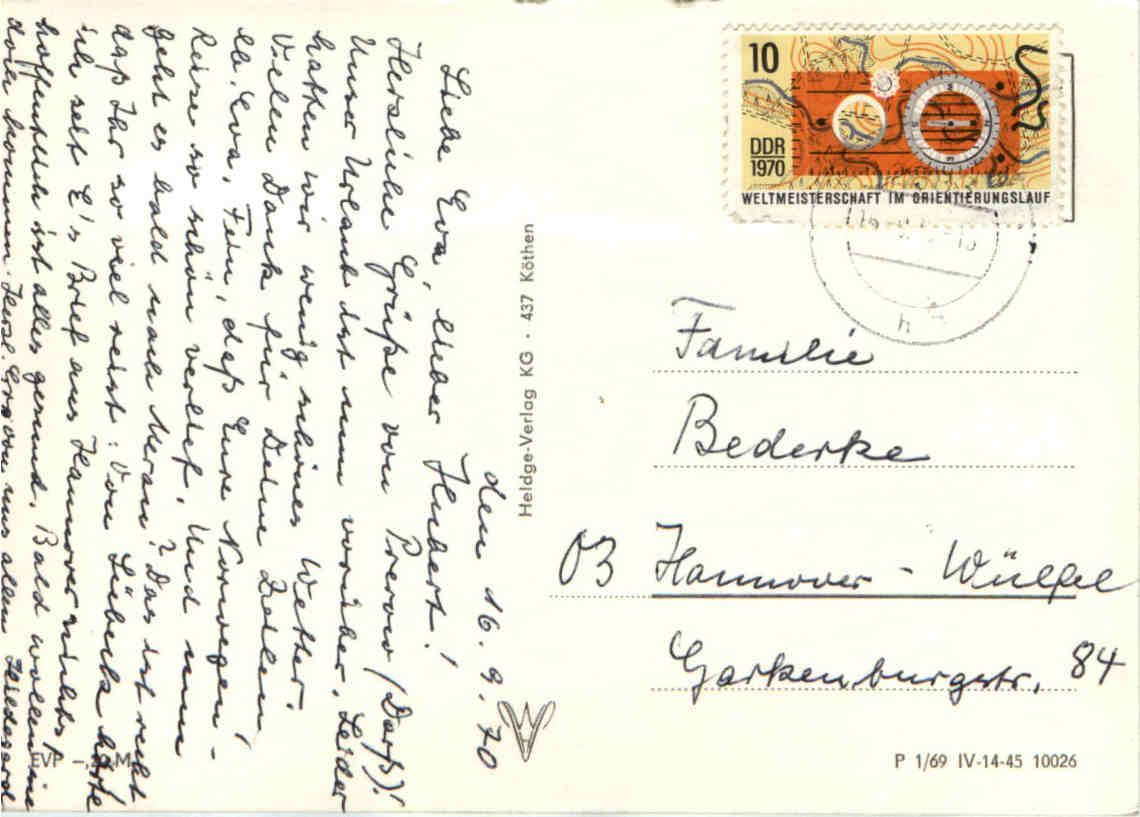 den 16. 9. 70
Liebe Eva, lieber Hubert!
Herzliche Grüße von Prerow (Darß)!
Unser Urlaub ist nun vorüber. Leider
hatten wir wenig schönes Wetter.
Vielen Dank für Deine Zeilen,
lb. Eva. Fein, daß Eure Norwegen-
Reise so schön verlief. Und nun
geht es bald nach Meran? Das ist recht
daß Ihr so viel reist! Von Lübeck hörte
ich seit E's Brief aus Hannover nichts,
hoffentlich ist alles gesund. Bald wollen sie
doch kommen. Herzl. von uns allen Hildegard
EVP - M
Heldge-Verlag KG · 437 Köthen
10
DDR
1970
WELTMEISTERSCHAFT IM ORIENTIERUNGSLAUF
Familie
Bederke
03 Hannover - Wülfel
Garkenburgstr. 84
P 1/69 IV-14-45 10026